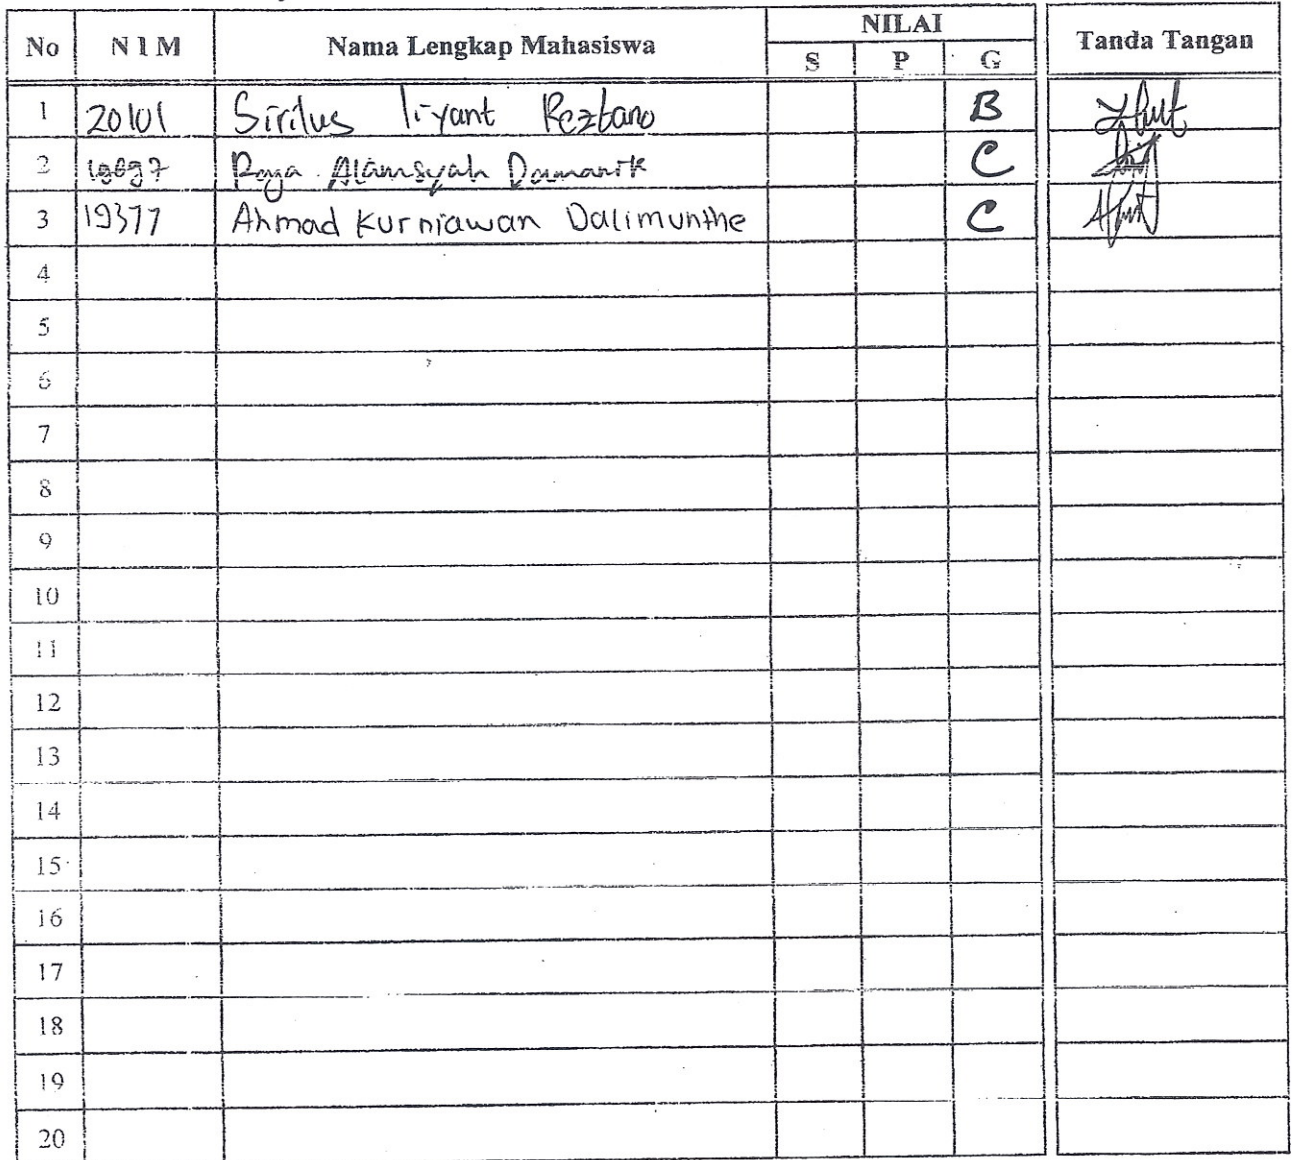 No N I M Nama Lengkap Mahasiswa NILAI Tanda Tangan
S P G
1 20101 Sirilus Reztano B
2 Alamsyah Damanik C
3 19377 Ahmad Kurniawan Dalimunthe C
4
5
6
7
8
9
10
11
12
13
14
15
16
17
18
19
20